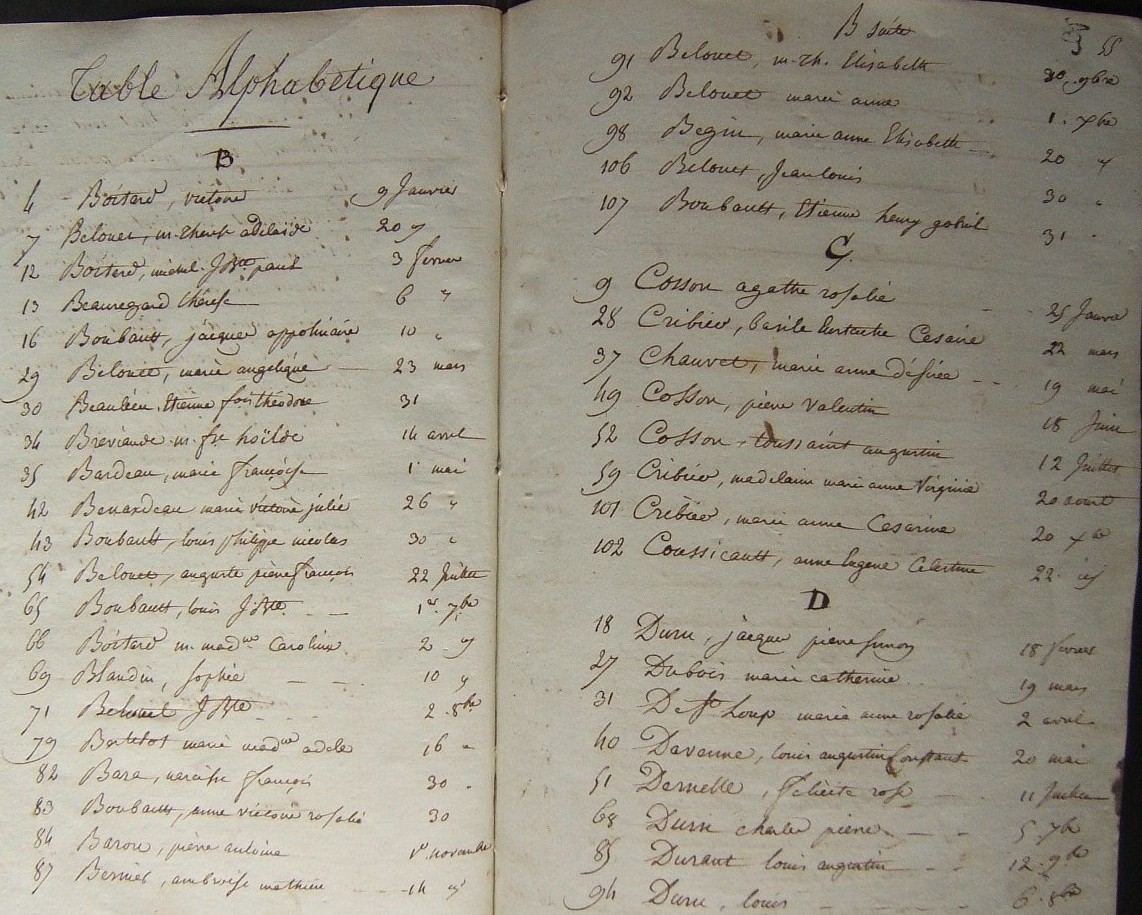 Table Alphabétique
B
4 Boitard, victoire 9 Janvier
7 Belouet, m. therese adelaide 20 "
12 Boitard, michel J Bte paul 3 fevrier
13 Beauregard therese 6 "
16 Boubault, jacque appolinaire 10 "
29 Belouet, marie angélique 23 mars
30 Beaulieu, Etienne fois théodore 31
34 Breviande m. fse 14 avril
35 Bardeau, marie françoise 1 mai
42 Benardeau marie victoire julie 26 "
43 Boubault, louis philippe nicolas 30 "
54 Belouet, auguste pierre françois 22 Juillet
65 Boubault, louis J. Bte 1er 7bre
66 Boitard m. madne Caroline 2 "
69 Blandin, sophie 10 "
71 Belouet J Bte 2 8bre
79 Bertelot marie madne adele 16 "
82 Bara, narcisse françois 30 "
83 Boubault, anne victoire rosalie 30
84 Baron, pierre antoine 1er novembre
87 Bernier, ambroise mathieu 14 "
B suite
55
91 Belouet, m. th. Elisabeth 30 9bre
92 Belouet marie anne 1 Xbre
98 Begin, marie anne Elisabeth 20 "
106 Belouet, Jean louis 30 "
107 Boubault, Etienne henry gabriel 31 "
C
9 Cosson agathe rosalie 25 Janvier
28 Cribier, basile Eustache Cesaire 22 mars
37 Chauvet, marie anne désirée 19 mai
49 Cosson, pierre Valentin 18 Juin
52 Cosson, toussaint augustin 12 Juillet
59 Cribier, madelaine marie anne Virginie 20 aout
101 Cribier, marie anne Cesarine 20 Xbre
102 Coussicault, anne Eugene Celestine 22
D
18 Duru, jacque pierre simon 18 fevrier
27 Dubois marie catherine 19 mars
31 De St Loup marie anne rosalie 2 avril
40 Davenne, louis augustin Constant 20 mai
51 Dernelle, felicité rose 11 Juillet
68 Duru charle pierre 5 7bre
85 Durant louis augustin 12 9bre
94 Duru, louis 6